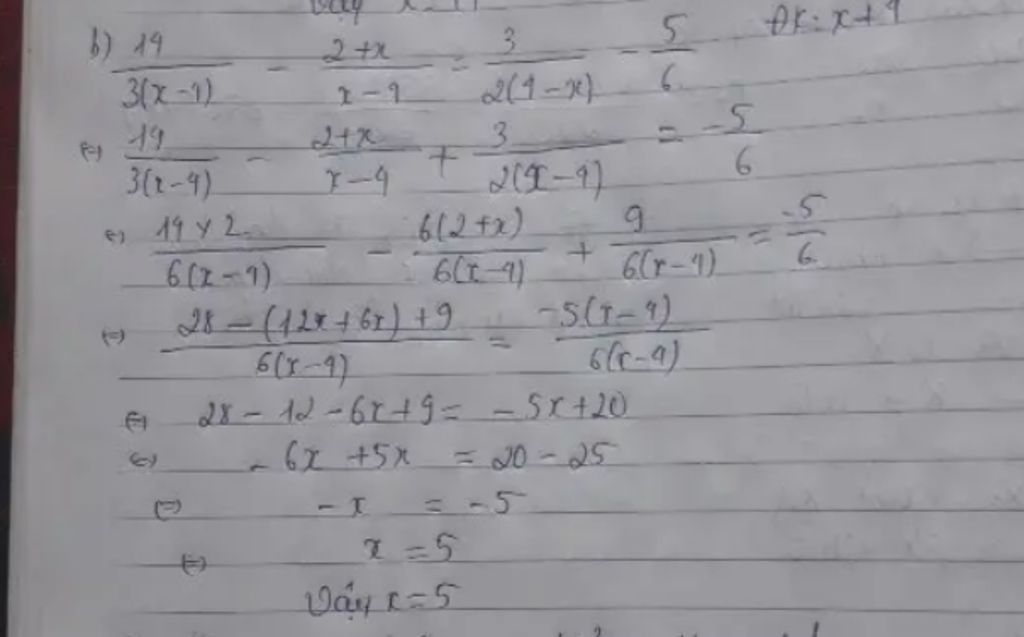 Vậy x
b) 14/3(x-4) - 2+x/x-4 = 3/2(4-x) - 5/6 ĐK: x ≠ 4
(=) 14/3(x-4) - 2+x/x-4 + 3/2(x-4) = -5/6
(=) 14 x 2/6(x-4) - 6(2+x)/6(x-4) + 9/6(x-4) = -5/6
(=) 28 - (12x+6x) + 9/6(x-4) = -5(x-4)/6(x-4)
(=) 28 - 12 - 6x + 9 = -5x + 20
(=) - 6x + 5x = 20 - 25
(=) - x = -5
(=) x = 5
Vậy x = 5